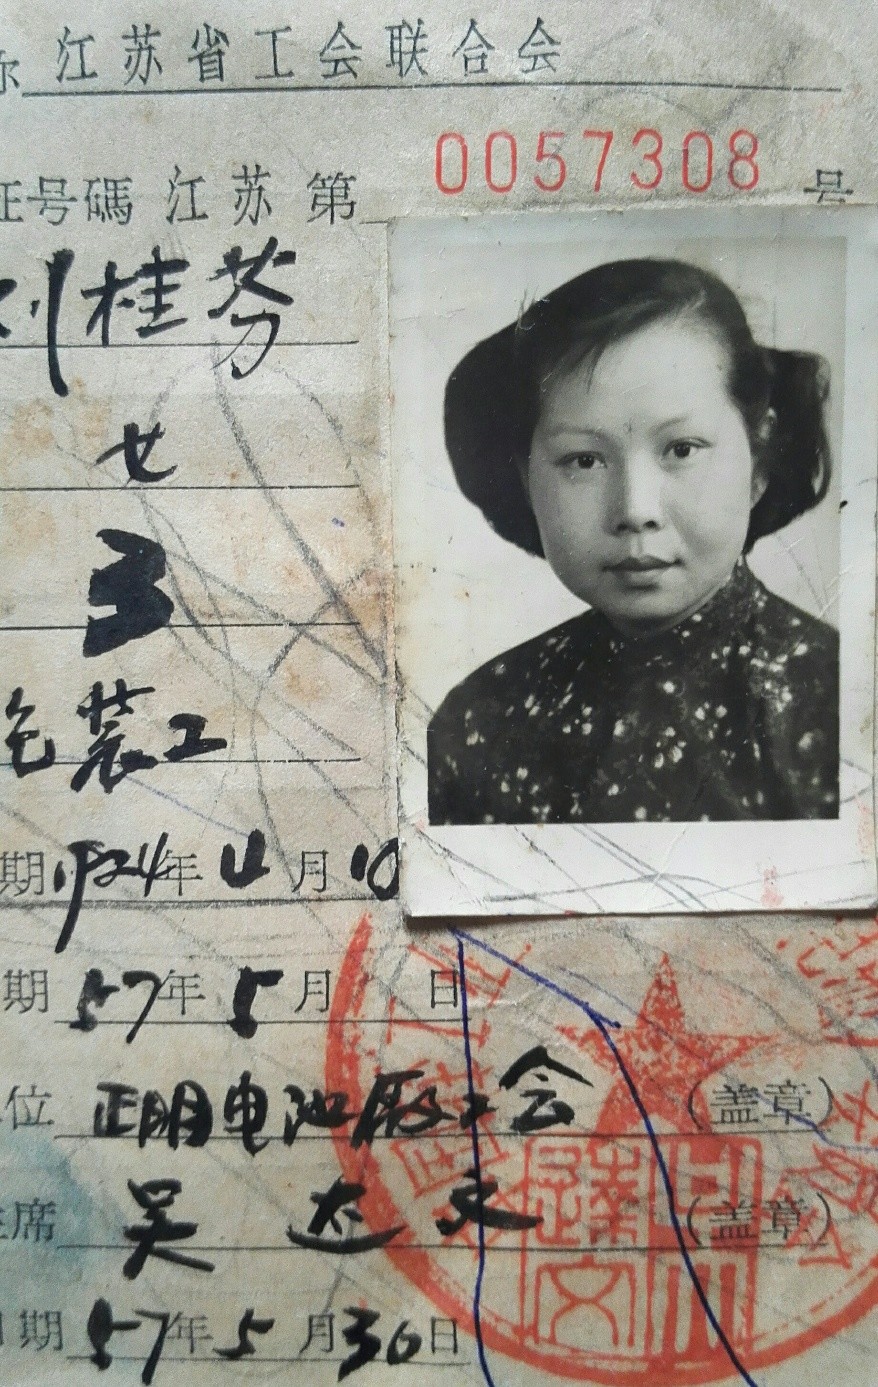 称 江苏省工会联合会
证号碼 江苏 第 0057308 号
刘桂芬
女
包装工
期 1924年 4月 10
期 57年 5月 日
位 正明电池厂工会 (盖章)
主席 吴达文 (盖章)
日期 57年 5月 30日